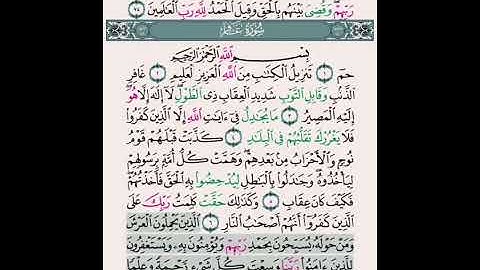 رَبِّهِمْ وَقُضِىَ بَيْنَهُم بِٱلْحَقِّ وَقِيلَ ٱلْحَمْدُ لِلَّهِ رَبِّ ٱلْعَٰلَمِينَ ٧٥
سُورَةُ غَافِرٍ
بِسْمِ ٱللَّهِ ٱلرَّحْمَٰنِ ٱلرَّحِيمِ
حمٓ ١ تَنزِيلُ ٱلْكِتَٰبِ مِنَ ٱللَّهِ ٱلْعَزِيزِ ٱلْعَلِيمِ ٢ غَافِرِ
ٱلذَّنۢبِ وَقَابِلِ ٱلتَّوْبِ شَدِيدِ ٱلْعِقَابِ ذِى ٱلطَّوْلِ لَآ إِلَٰهَ إِلَّا هُوَ
إِلَيْهِ ٱلْمَصِيرُ ٣ مَا يُجَٰدِلُ فِىٓ ءَايَٰتِ ٱللَّهِ إِلَّا ٱلَّذِينَ كَفَرُوا۟
فَلَا يَغْرُرْكَ تَقَلُّبُهُمْ فِى ٱلْبِلَٰدِ ٤ كَذَّبَتْ قَبْلَهُمْ قَوْمُ
نُوحٍ وَٱلْأَحْزَابُ مِنۢ بَعْدِهِمْ وَهَمَّتْ كُلُّ أُمَّةٍۭ بِرَسُولِهِمْ
لِيَأْخُذُوهُ وَجَٰدَلُوا۟ بِٱلْبَٰطِلِ لِيُدْحِضُوا۟ بِهِ ٱلْحَقَّ فَأَخَذْتُهُمْ
فَكَيْفَ كَانَ عِقَابِ ٥ وَكَذَٰلِكَ حَقَّتْ كَلِمَتُ رَبِّكَ عَلَى
ٱلَّذِينَ كَفَرُوٓا۟ أَنَّهُمْ أَصْحَٰبُ ٱلنَّارِ ٦ ٱلَّذِينَ يَحْمِلُونَ ٱلْعَرْشَ
وَمَنْ حَوْلَهُۥ يُسَبِّحُونَ بِحَمْدِ رَبِّهِمْ وَيُؤْمِنُونَ بِهِۦ وَيَسْتَغْفِرُونَ
لِلَّذِينَ ءَامَنُوا۟ رَبَّنَا وَسِعْتَ كُلَّ شَىْءٍ رَّحْمَةً وَعِلْمًا